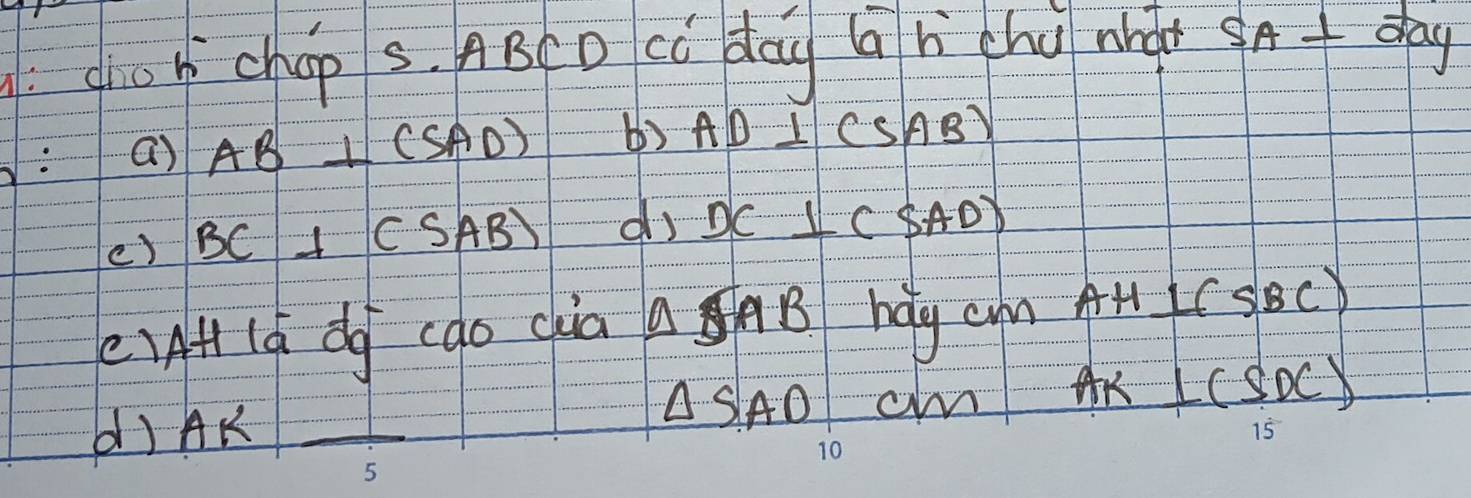 cho h chóp S.ABCD có đáy là h chữ nhật SA ⊥ đáy
: a) AB ⊥ (SAD) b) AD ⊥ (SAB)
c) BC ⊥ (SAB) d) DC ⊥ (SAD)
e) AH là đg cao của Δ SAB hãy cm AH ⊥ (SBC)
d) AK —— Δ SAD cm AK ⊥ (SDC)
5 10 15